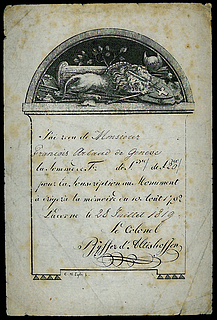 J'ai reçu de Monsieur
François Artaud de Genève
la somme de Fr. de S.
pour la Souscription au Monument
à ériger à la mémoire du 10 Août 1792
Lucerne le 28 Juillet 1819
le Colonel
Pfyffer d'Altishoffen